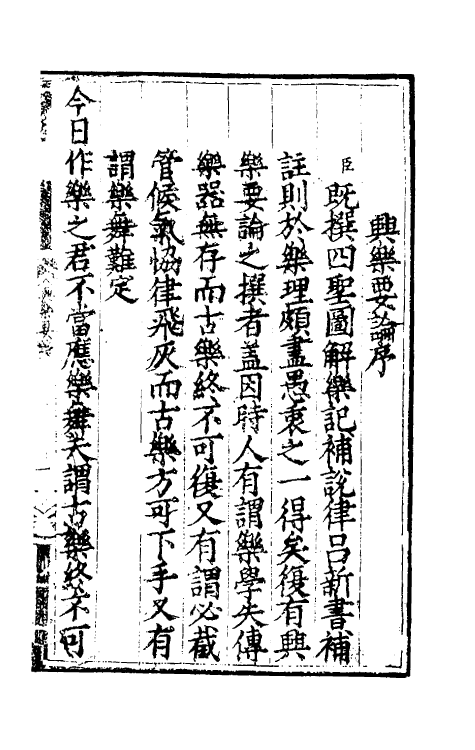 興樂要論序
臣既撰四聖圖解樂記補說律呂新書補
註則於樂理頗盡愚衷之一得矣復有興
樂要論之撰者蓋因時人有謂樂學失傳
樂器無存而古樂終不可復又有謂必截
管候氣協律飛灰而古樂方可下手又有
謂樂舞難定
今日作樂之君不當應樂舞夫謂古樂終不可